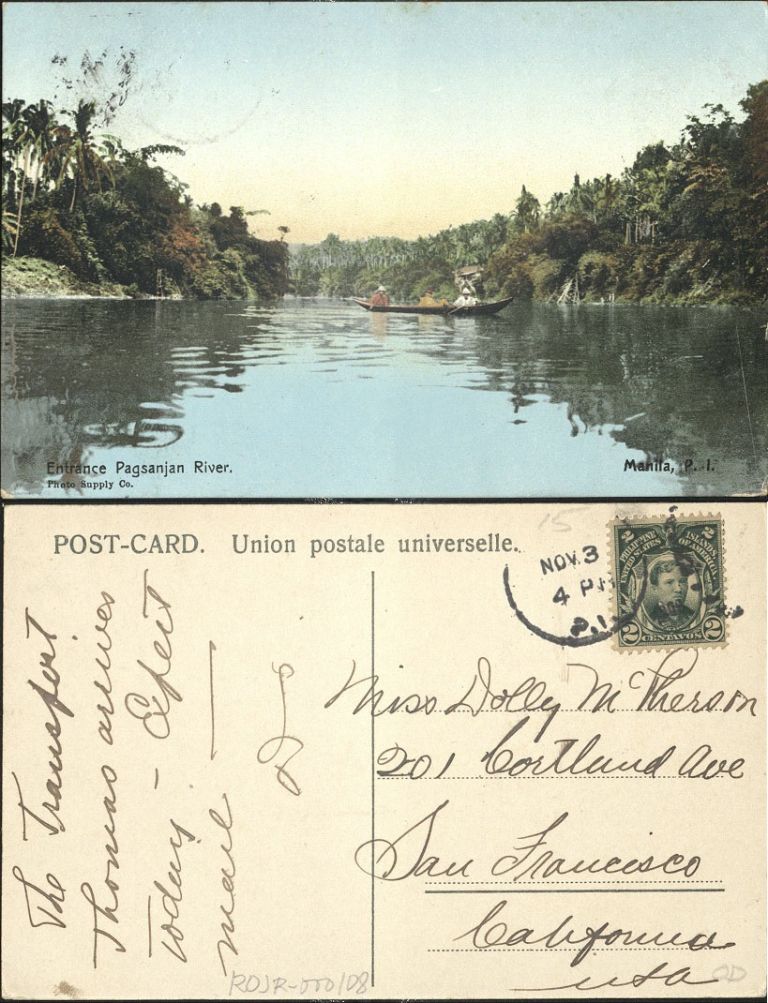 Entrance Pagsanjan River.
Photo Supply Co.
Manila, P. I.
POST-CARD. Union postale universelle.
15
NOV. 3
4 PM
P.I.
2 2
PHILIPPINE ISLANDS
UNITED STATES OF AMERICA
2 CENTAVOS 2
The Transport
Thomas arrives
today - Expect
mail —
Miss Dolly McPherson
201 Cortland Ave
San Francisco
California
USA
ROJR-000108
OD